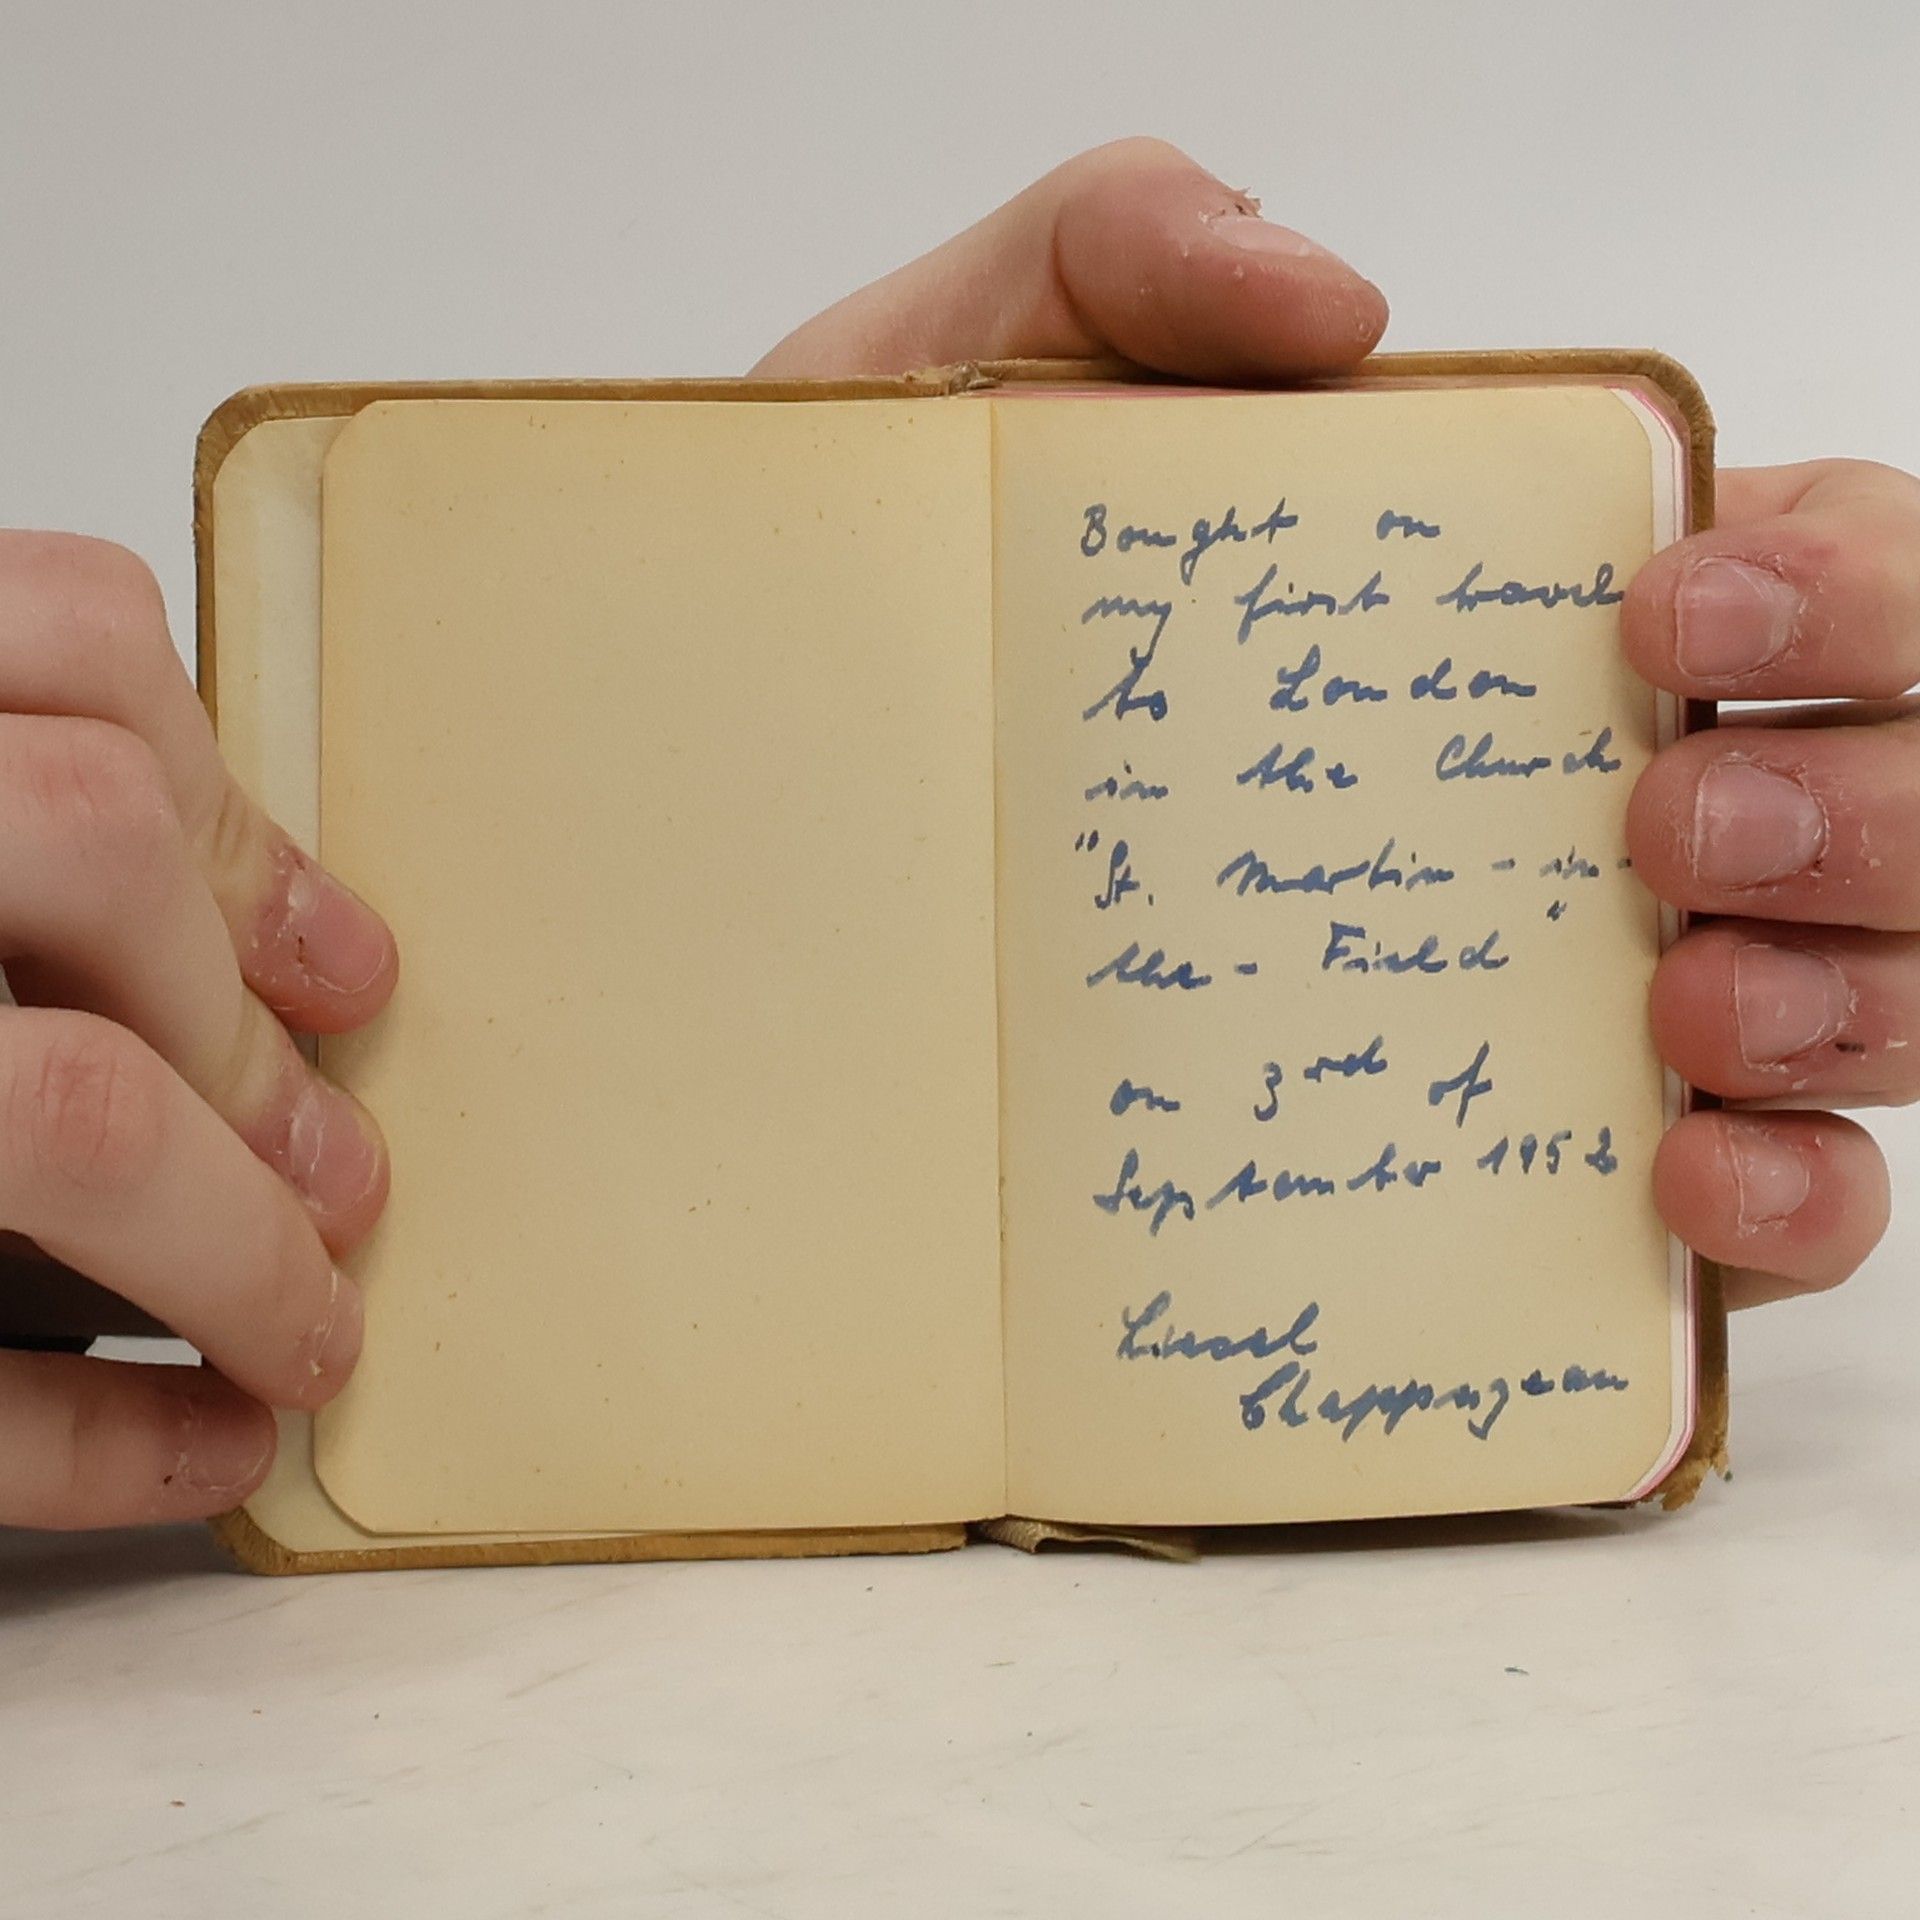 Bought on
my first travel
to London
in the Church
"St. Martin - in -
the - Field"
on 3rd of
September 1952
Liesel